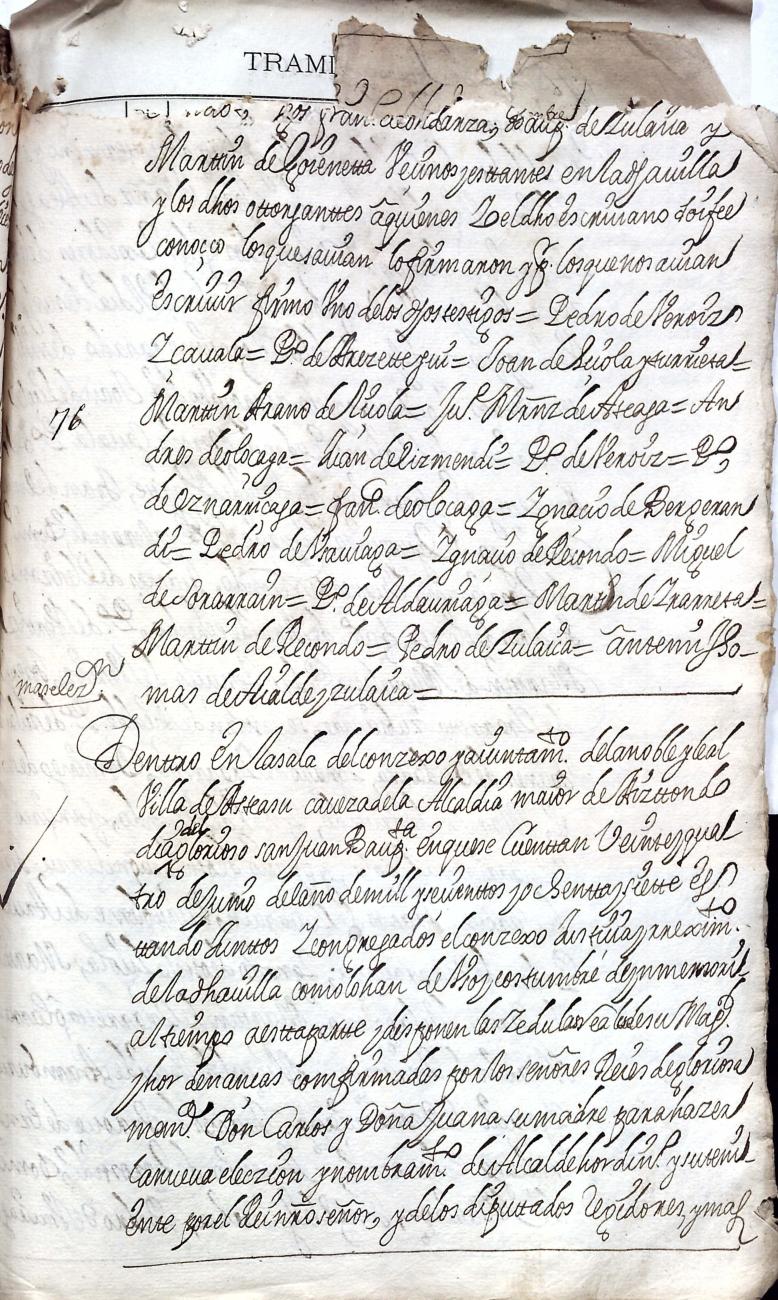 TRAMI
de Zulaica y
Martin de Goienetta Vecinos y esttantes en la dha uilla
y los dhos ottorganttes aquienes Yo el dho escriuano doi fee
conozco los que sauian lo firmaron y p. los que no sauian
escriuir firmo Vno de los dhos testigos = Pedro de Veroiz
Zauala = Po. de Arezettegui = Joan de Vuola yturrieta =
76
Marttin Arano de Vuola = Ju.o Mrnz de Atteaga = An
dres de olocaga = Juan de Lizmendi = Po. de Veroiz = Po,
de Oznarricaga = fran. de olocaga = Ygnacio de Bergeran
di = Pedro de = Ygnacio de Recondo = Miguel
de Sorarrain = Po. de Aldauriaga = Martin de Yrarreta =
Marttin de Recondo = Pedro de Zulaica = Antemi Tho-
mas de Alcalde y zulaica =
Dentro en la sala del conzexo y aiuntamto. de la noble y leal
Villa de Asteasu caueza de la Alcaldia maior de Aizttondo
dia del glorioso san Juan Baupta. en que se Cuenttan Veintte y qua
tro de Junio del año de mill y seiscienttos y ochentta y siette es
ttando Junttos Y congregados el conzexo Justicia y rreximto.
de la dha uilla como lo han de Vso y costumbre de ynmemorial
al tiempo a estta partte y disponen las zedulas reales de su Magd.
y hordenanzas confirmadas por los señores Reies de gloriosa
memo. Don Carlos y Doña Juana su madre para hazer
la nueua eleczion y nombramto. de Alcalde hordino. y su teni
ente por el Rei nro señor, y de los diputtados Regidores, y mas